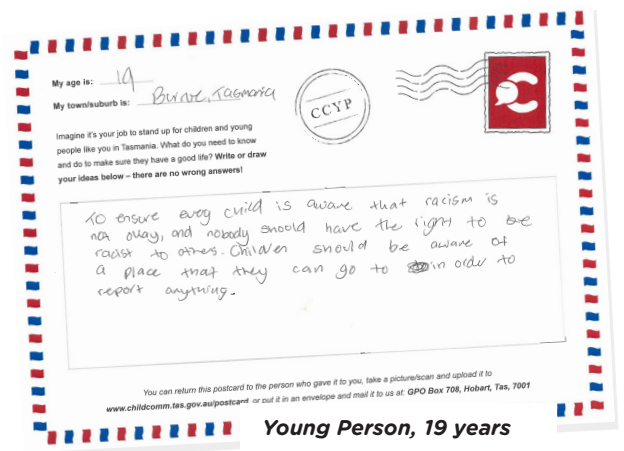 My age is: 19
My town/suburb is: Burnie, Tasmania
CCYP
Imagine it's your job to stand up for children and young
people like you in Tasmania. What do you need to know
and do to make sure they have a good life? Write or draw
your ideas below – there are no wrong answers!
To ensure every child is aware that racism is
not okay, and nobody should have the right to be
racist to others. Children should be aware of
a place that they can go to in order to
report anything.
You can return this postcard to the person who gave it to you, take a picture/scan and upload it to
www.childcomm.tas.gov.au/postcard or put it in an envelope and mail it to us at: GPO Box 708, Hobart, Tas, 7001
Young Person, 19 years